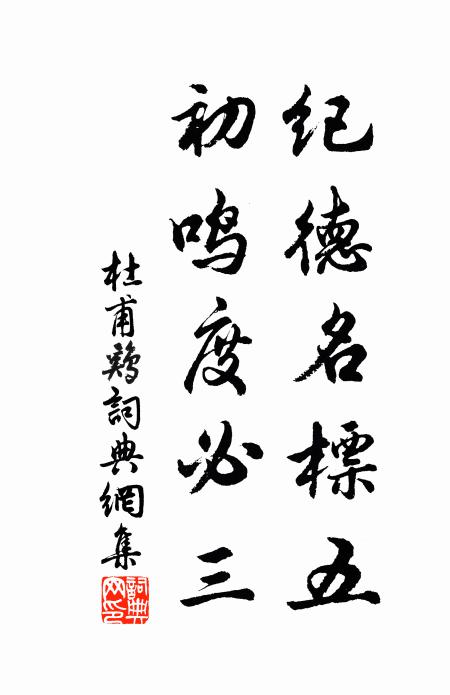 纪德名標五
初鸣度必三
杜甫鷄詞典網集
詞典网印